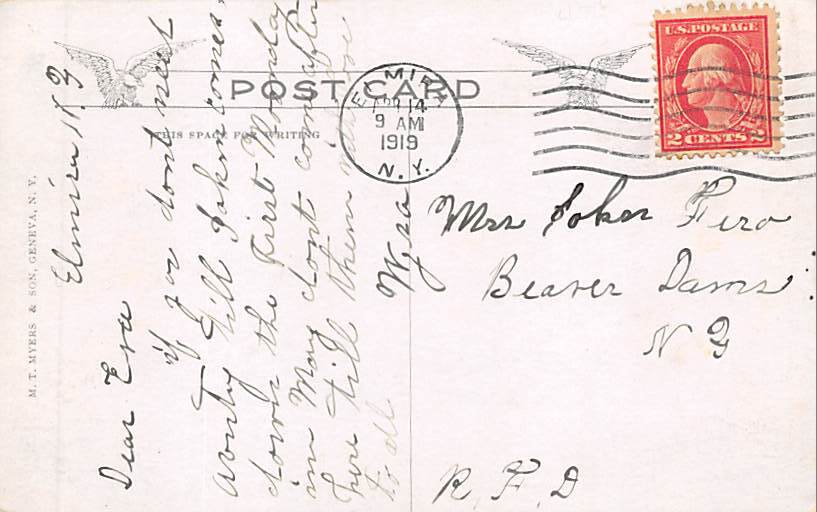 POST CARD
THIS SPACE FOR WRITING
M. T. MYERS & SON, GENEVA, N. Y.
U.S. POSTAGE
2 CENTS 2
ELMIRA
APR 14
9 AM
1919
N. Y.
Elmira N. Y
Dear Eva
if you dont need
aunty till John comes
down the First Monday
in May dont come after
her till then with love
to all
Mrs John Fero
Beaver Dams
N Y
R. F. D